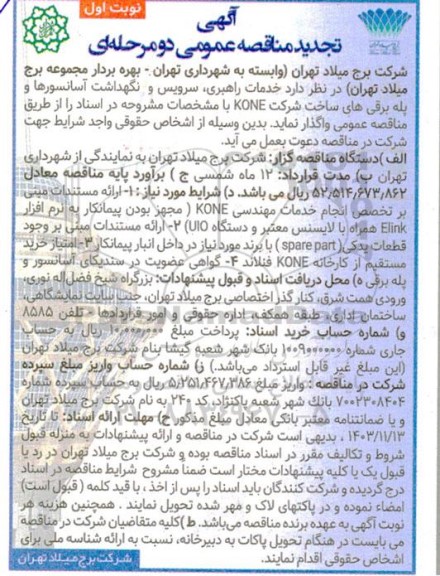 نوبت اول
آگهی
تجدید مناقصه عمومی دو مرحله‌ای
شرکت برج میلاد تهران (وابسته به شهرداری تهران - بهره بردار مجموعه برج
میلاد تهران) در نظر دارد خدمات راهبری، سرویس و نگهداشت آسانسورها و
پله برقی های ساخت شرکت KONE با مشخصات مشروحه در اسناد را از طریق
مناقصه عمومی واگذار نماید. بدین وسیله از اشخاص حقوقی واجد شرایط جهت
شرکت در مناقصه دعوت بعمل می آید.
الف )دستگاه مناقصه گزار: شرکت برج میلاد تهران به نمایندگی از شهرداری
تهران ب) مدت قرارداد: ۱۲ ماه شمسی ج ) برآورد پایه مناقصه معادل
۵۲,۵۱۴,۶۷۳,۸۶۲ ریال می باشد. د) شرایط مورد نیاز : ۱- ارائه مستندات مبنی
بر تخصص انجام خدمات مهندسی KONE ( مجهز بودن پیمانکار به نرم افزار
Elink همراه با لایسنس معتبر و دستگاه UIO) ۲- ارائه مستندات مبنی بر وجود
قطعات یدکی( spare part) با برند مورد نیاز در داخل انبار پیمانکار ۳- امتیاز خرید
مستقیم از کارخانه KONE فنلاند ۴- گواهی عضویت در سندیکای آسانسور و
پله برقی ه) محل دریافت اسناد و قبول پیشنهادات: بزرگراه شیخ فضل اله نوری،
ورودی همت شرق، کنار گذر اختصاصی برج میلاد تهران، جنب سایت نمایشگاهی،
ساختمان اداری، طبقه همکف، اداره حقوقی و امور قراردادها - تلفن ۸۵۸۵
و) شماره حساب خرید اسناد: پرداخت مبلغ ریال به حساب
جاری شماره بانک شهر شعبه کیشا بنام شرکت برج میلاد تهران
(این مبلغ غیر قابل استرداد می‌باشد.) ز) شماره حساب واریز مبلغ سپرده
شرکت در مناقصه : واریز مبلغ ۵,۲۵۱,۴۶۷,۳۸۶ ریال به حساب سپرده شماره
۷۰۰۲۳۰۸۴۰۴ بانک شهر شعبه پاکنژاد، کد ۲۴۰ به نام شرکت برج میلاد تهران
و یا ضمانتنامه معتبر بانکی معادل مبلغ مذکور ح) مهلت ارائه اسناد: تا تاریخ
۱۴۰۳/۱۱/۱۳ ، بدیهی است شرکت در مناقصه و ارائه پیشنهادات به منزله قبول
شروط و تکالیف مقرر در اسناد مناقصه بوده و شرکت برج میلاد تهران در رد یا
قبول یک یا کلیه پیشنهادات مختار است ضمنا مشروح شرایط مناقصه در اسناد
درج گردیده و شرکت کنندگان باید اسناد را پس از اخذ ، با قید کلمه ( قبول است)
امضاء نموده و در پاکتهای لاک و مهر شده تحویل نمایند . همچنین هزینه هر
نوبت آگهی به عهده برنده مناقصه می‌باشد. ط )کلیه متقاضیان شرکت در مناقصه
می بایست در هنگام تحویل پاکات به دبیرخانه، نسبت به ارائه شناسه ملی برای
اشخاص حقوقی اقدام نمایند.
شرکت برج میلاد تهران